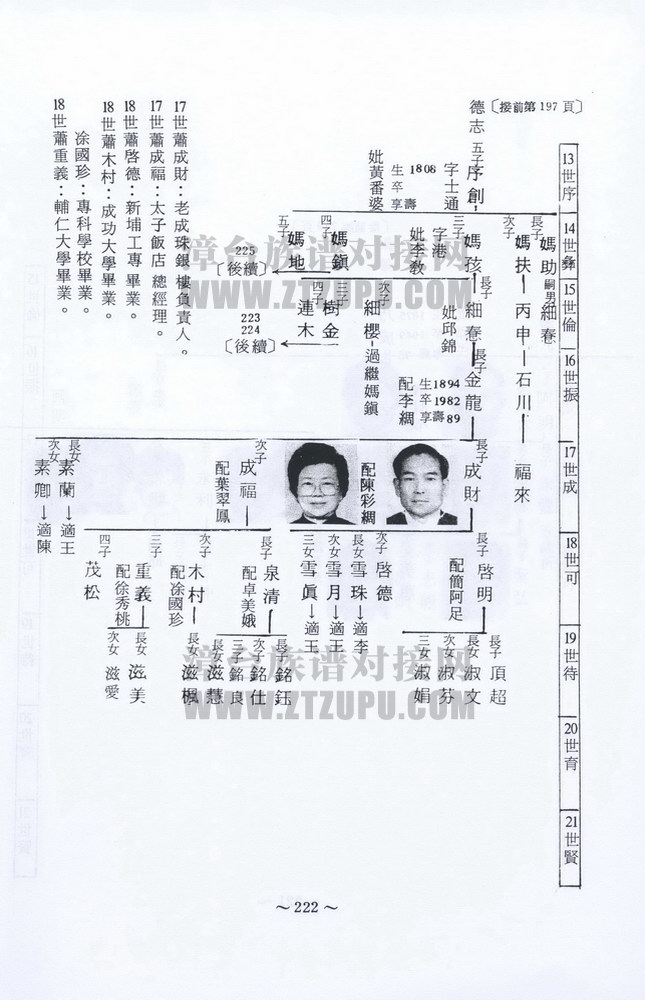 〔接前第197頁〕
13世序
14世彝
15世倫
16世振
17世成
18世可
19世待
20世育
21世賢
德志
五子
序創
字士通
生1808
卒
享壽
妣黃番婆
長子
媽助
嗣男細春
次子
媽扶
丙申
石川
福來
三子
媽孩
字港
妣李教
四子
媽鎮
五子
媽地
225
〔後續〕
長子
細春
妣邱錦
次子
細櫻
過繼媽鎮
三子
樹金
四子
連木
223
224
〔後續〕
長子
金龍
生1894
卒1982
享壽89
配李綢
長子
成財
配陳彩綢
次子
成福
配葉翠鳳
長女
素蘭→適王
次女
素卿→適陳
長子
啓明
配簡阿足
次子
啓德
長女
雪珠→適李
次女
雪月→適王
三女
雪眞→適王
長子
泉清
配卓美娥
次子
木村
配凃國珍
三子
重義
配徐秀桃
四子
茂松
長子
頂超
長女
淑文
次女
淑芬
三女
淑娟
長子
銘鈺
次子
銘仕
三子
銘良
長女
滋慧
長女
滋楓
長女
滋美
次女
滋愛
17世蕭成財：老成珠銀樓負責人。
17世蕭成福：太子飯店總經理。
18世蕭啓德：新埔工專畢業。
18世蕭木村：成功大學畢業。
凃國珍：專科學校畢業。
18世蕭重義：輔仁大學畢業。
漳台族谱对接网
WWW.ZTZUPU.COM
漳台族谱对接网
WWW.ZTZUPU.COM
～222～